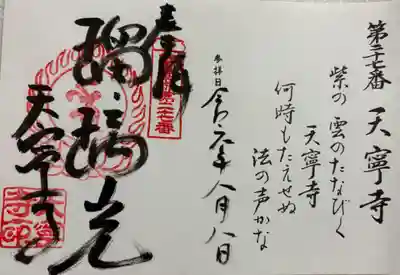 第二十七番 天寧寺
紫の 雲のたなびく
天寧寺
何時もたえせぬ
法の声かな
参拝日 令和元年八月八日
奉拝
瑠璃光
天寧寺